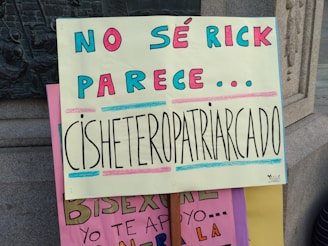 NO SÉ RICK
PARECE...
CISHETEROPATRIARCADO
YO TE APOYO...
LA